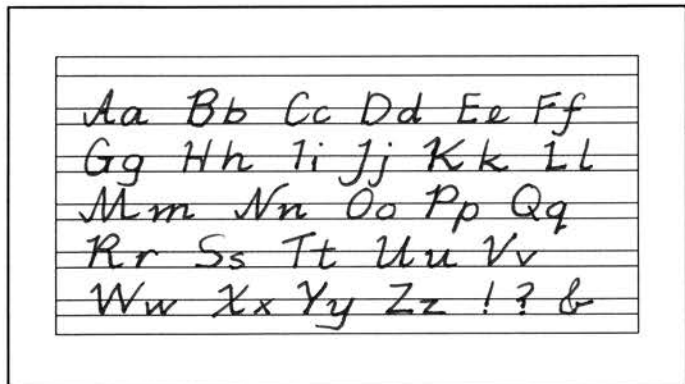 Aa Bb Cc Dd Ee Ff
Gg Hh Ii Jj Kk Ll
Mm Nn Oo Pp Qq
Rr Ss Tt Uu Vv
Ww Xx Yy Zz ! ? &